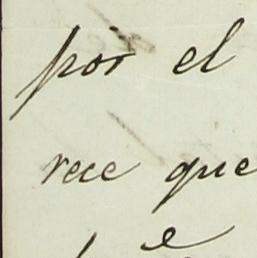 por el
rece que